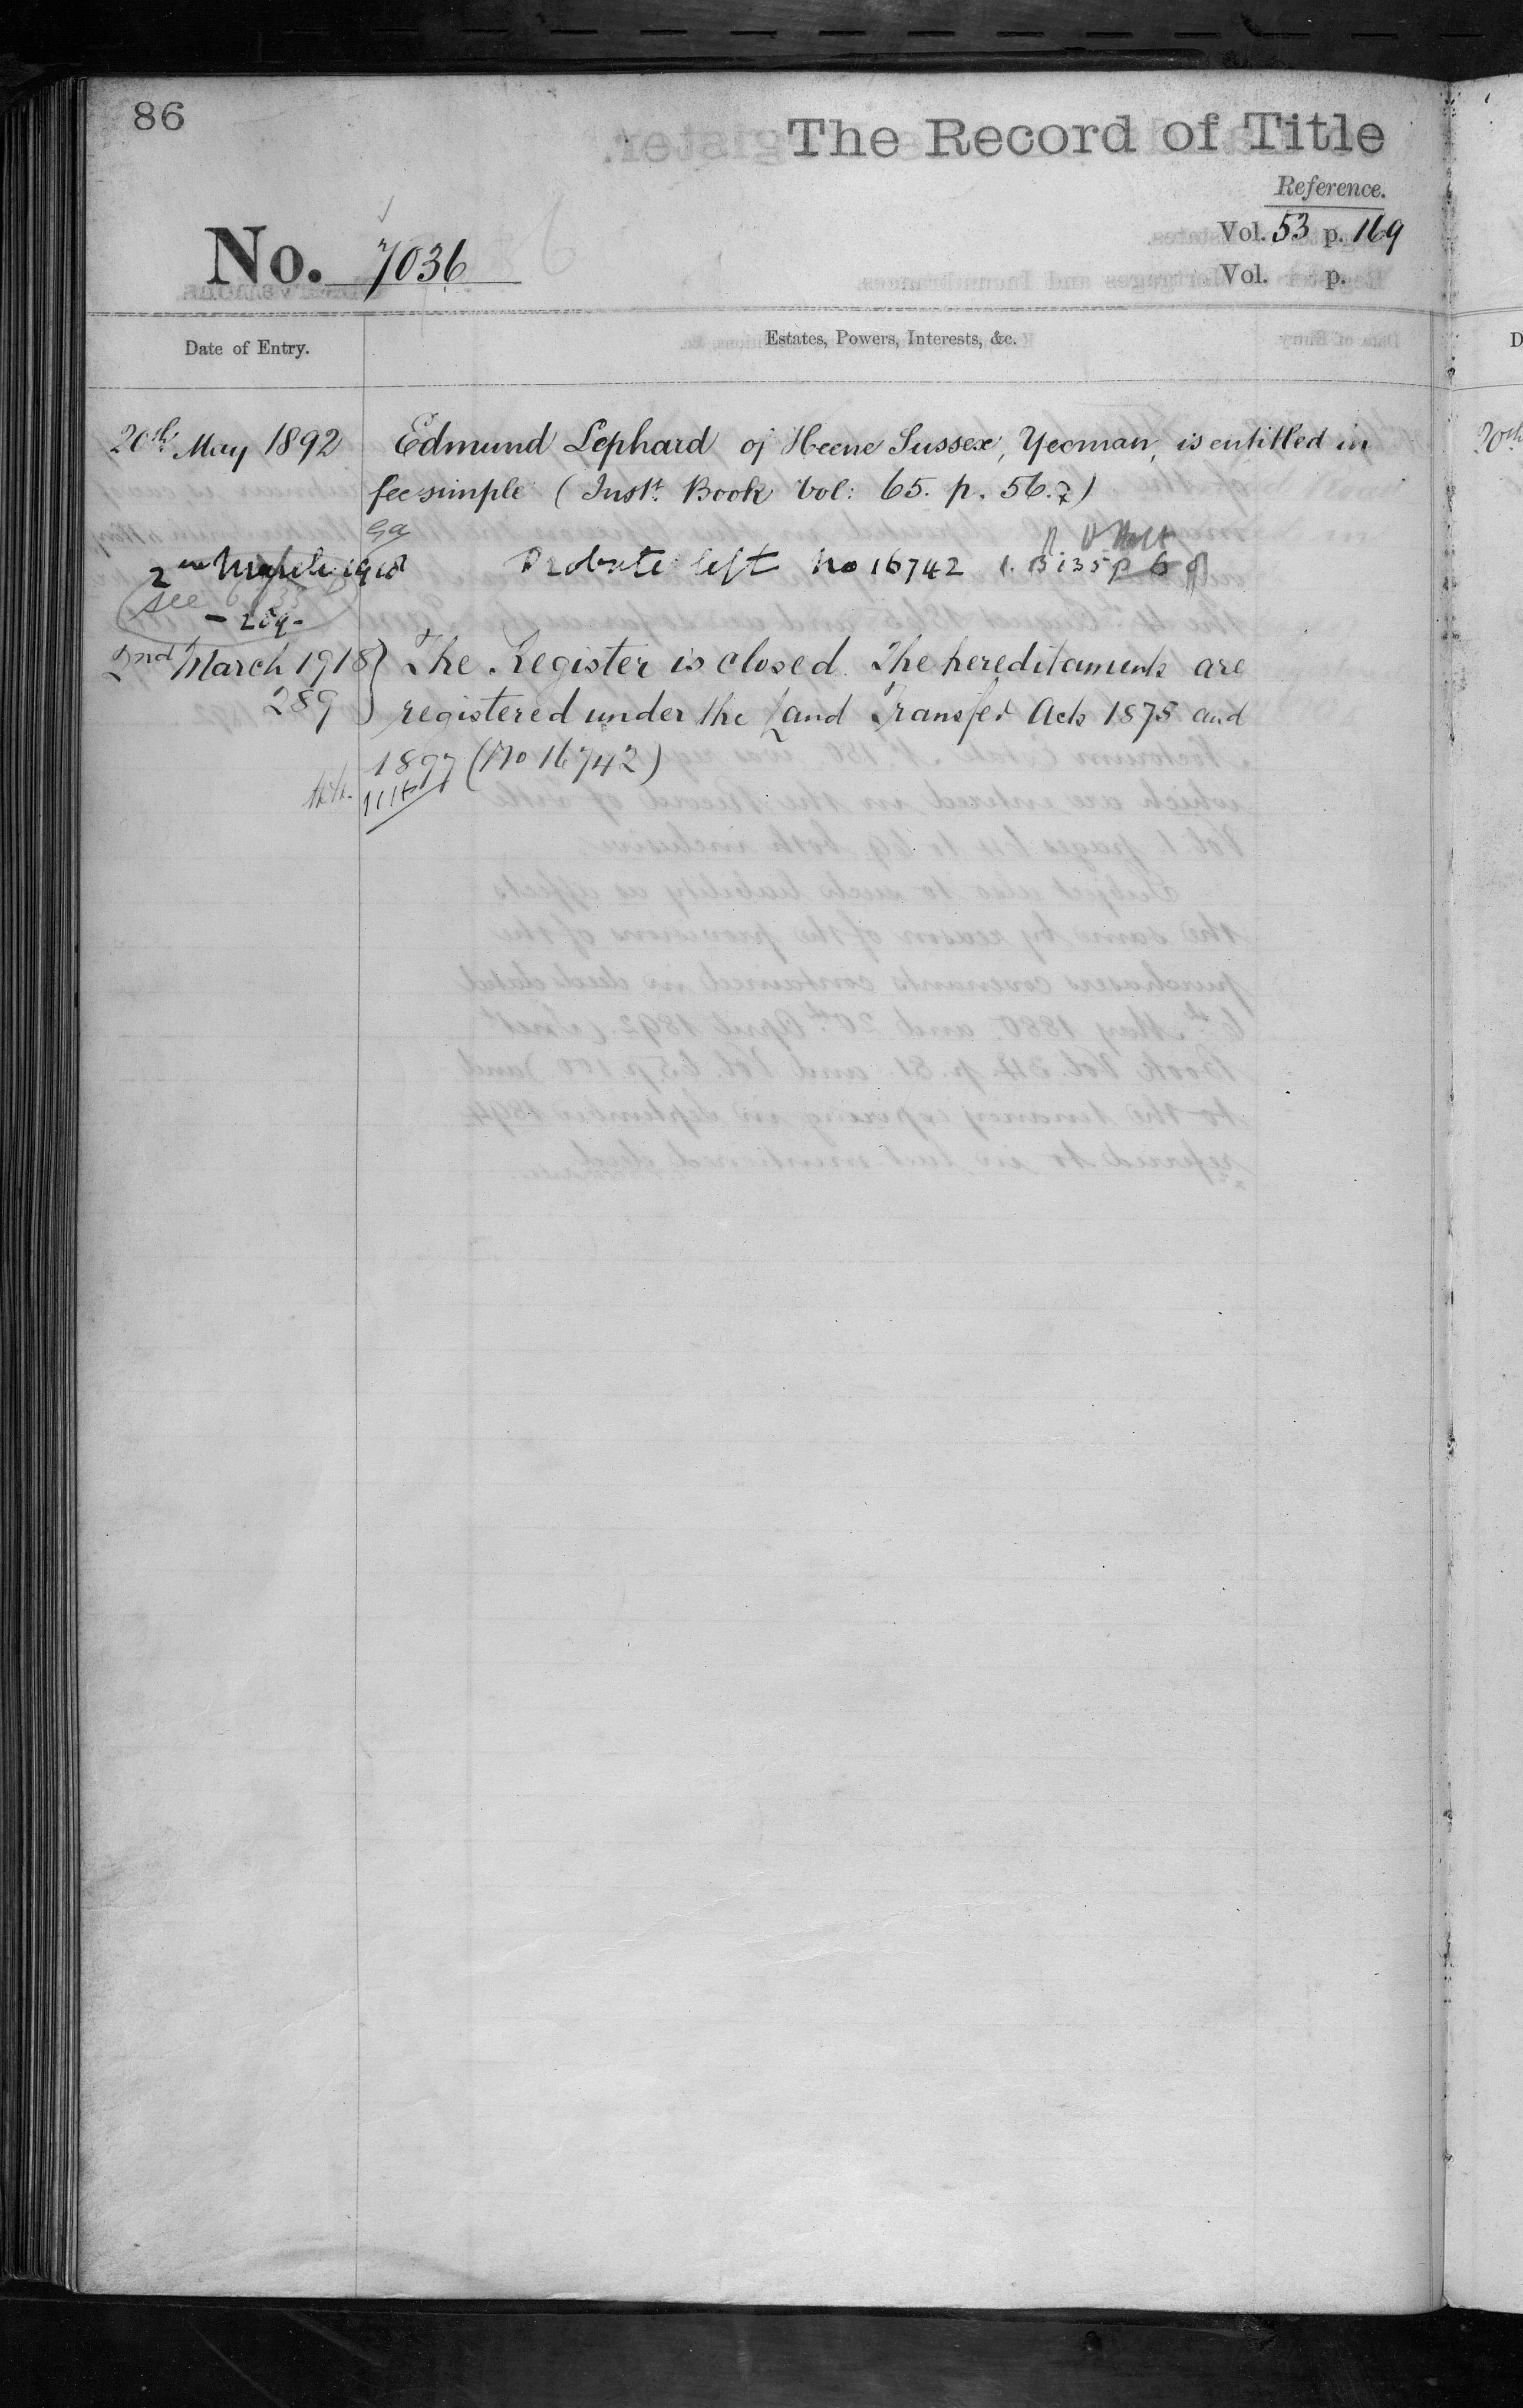 86
The Record of Title
Reference.
Vol. 53 p. 169
No. 7036
Vol. p.
Date of Entry.
Estates, Powers, Interests, &c.
20th May 1892
Edmund Lephard of Heene Sussex, Yeoman, is entitled in
fee simple (Inst. Book Vol: 65. p. 56.)
2nd March 1918
Probate left No 16742
see
289
2nd March 1918
The Register is closed. The hereditaments are
289
registered under the Land Transfer Acts 1875 and
1897 (No 16742)